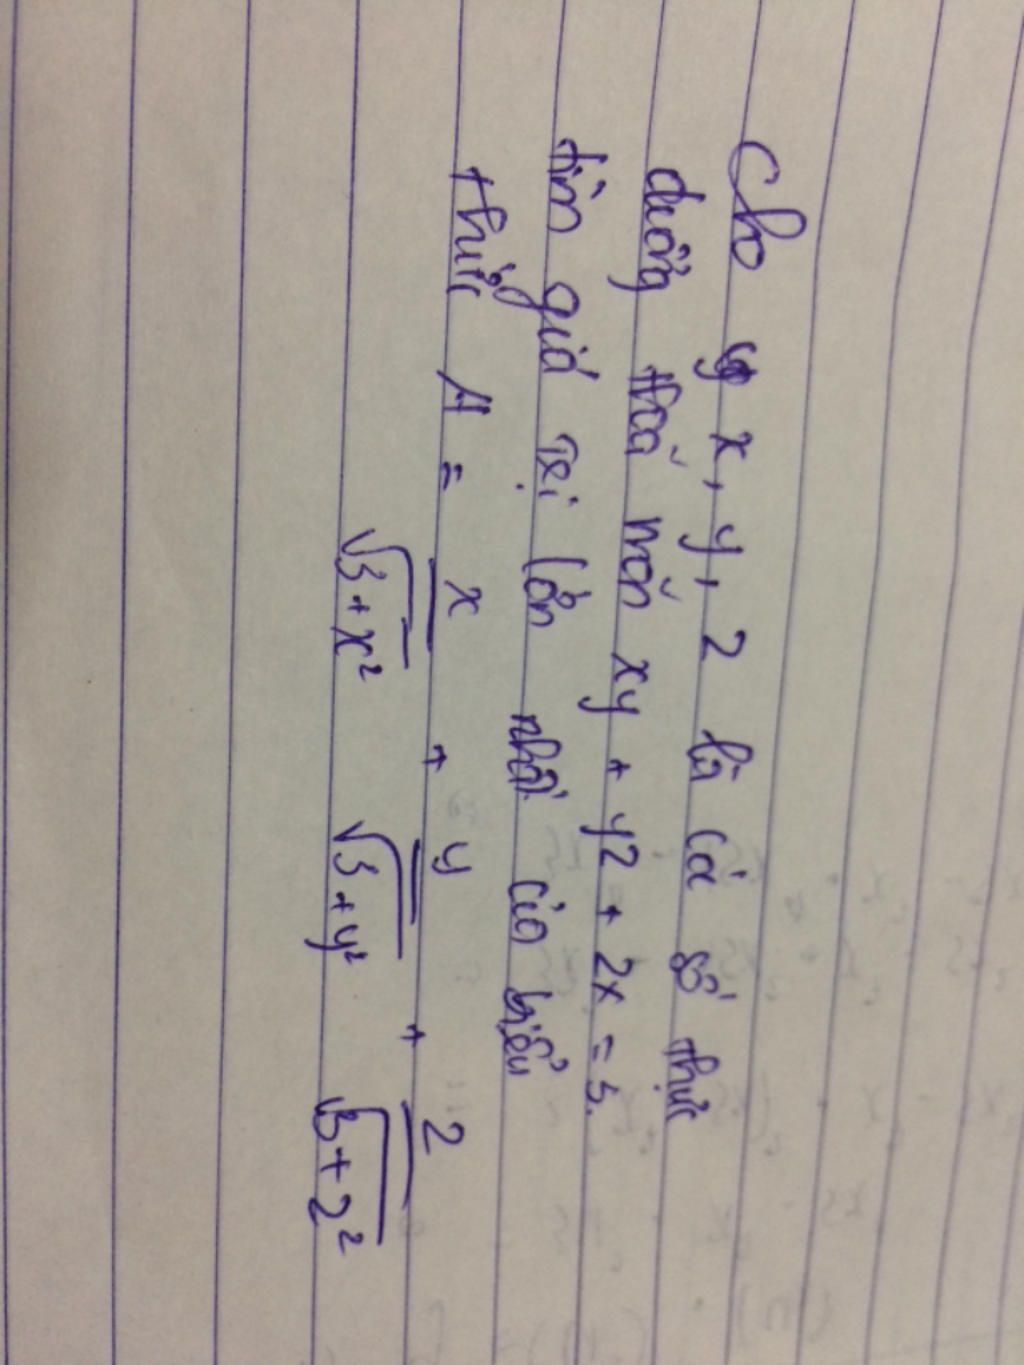 Cho x, y, z là cá số thực
dương thoả mãn xy + yz + zx = 3.
tìm giá trị lớn nhất của biểu
thức A = x/√3+x² + y/√3+y² + z/√3+z²